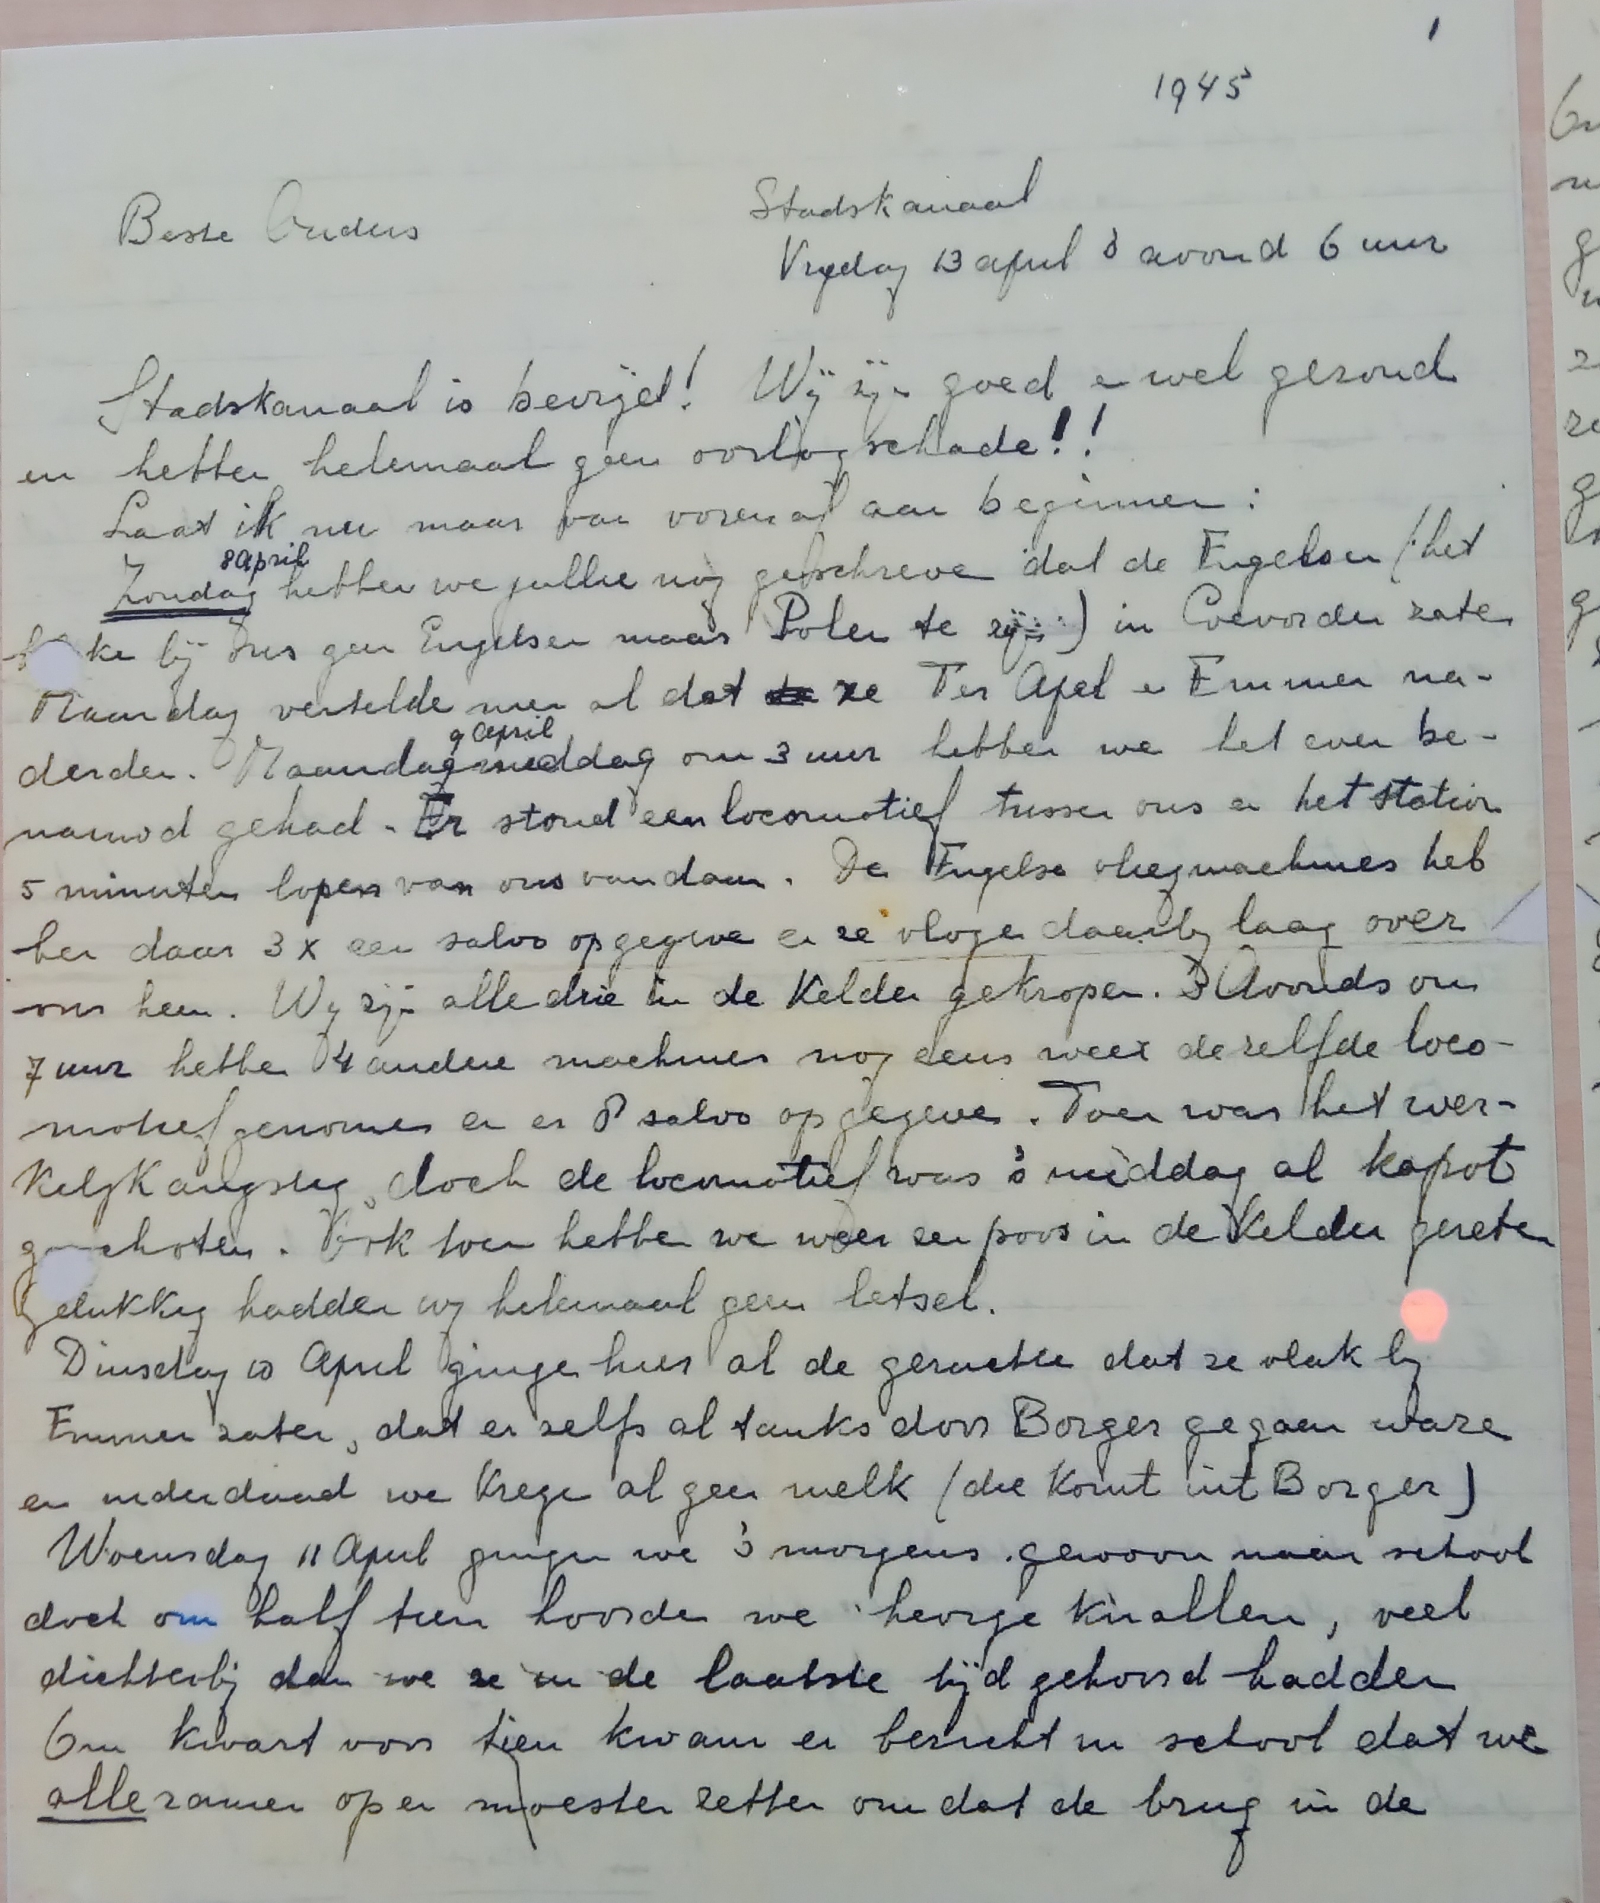 1
1945
Beste Ouders
Stadskanaal
Vrijdag 13 april 's avond 6 uur
Stadskanaal is bevrijd! Wij zijn goed en wel gezond
en hebben helemaal geen oorlogschade!!
Laat ik nu maar van vorenaf aan beginnen:
8 april
Zondag hebben we jullie nog geschreven dat de Engelsen (het
ke bij ons geen Engelsen maar Polen te zijn) in Coevorden zaten
Maandag vertelde men al dat ze Ter Apel en Emmen na-
9 april
derden. Maandagmiddag om 3 uur hebben we het even be-
nauwd gehad. Er stond een locomotief tussen ons en het station
5 minuten lopen van ons vandaan. De Engelse vliegmachines heb
ben daar 3 x een salvo op gegeven en ze vlogen daarbij laag over
ons heen. Wij zijn alle drie in de Kelder gekropen. 's Avonds om
7 uur hebben 4 andere machines nog eens weer dezelfde loco-
motief genomen en er 8 salvo op gegeven. Toen was het wer-
kelijk angstig, doch de locomotief was 's middag al kapot
geschoten. Ook toen hebben we weer een poos in de Kelder gezeten
gelukkig hadden wij helemaal geen letsel.
Dinsdag 10 April gingen hier al de geruchten dat ze vlak bij
Emmen zaten, dat er zelfs al tanks door Borger gegaan waren
en inderdaad we kregen al geen melk (die komt uit Borger)
Woensdag 11 April gingen we 's morgens gewoon naar school
doch om half tien hoorden we hevige knallen, veel
dichterbij dan we ze in de laatste tijd gehoord hadden
Om kwart voor tien kwam er bericht in school dat we
alle ramen open moesten zetten omdat de brug in de